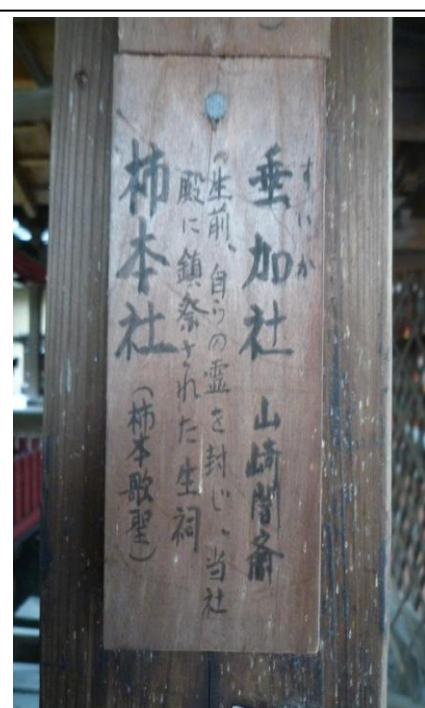 すいか
垂加社 山崎闇斎
(生前、自らの霊を封じ、当社
殿に鎮祭された生祠
柿本社(柿本歌聖)